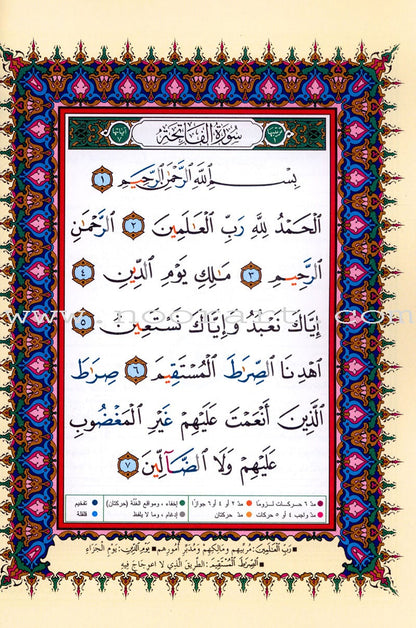 ترتيبها ١ سُورَةُ الفَاتِحَةِ آياتها ٧
بِسْمِ اللَّهِ الرَّحْمَٰنِ الرَّحِيمِ ١
الْحَمْدُ لِلَّهِ رَبِّ الْعَالَمِينَ ٢ الرَّحْمَٰنِ
الرَّحِيمِ ٣ مَالِكِ يَوْمِ الدِّينِ ٤
إِيَّاكَ نَعْبُدُ وَإِيَّاكَ نَسْتَعِينُ ٥
اهْدِنَا الصِّرَاطَ الْمُسْتَقِيمَ ٦ صِرَاطَ
الَّذِينَ أَنْعَمْتَ عَلَيْهِمْ غَيْرِ الْمَغْضُوبِ
عَلَيْهِمْ وَلَا الضَّالِّينَ ٧
مدّ ٦ حركات لزومًا مدّ ٢ أو ٤ أو ٦ جوازًا إخفاء، ومواقع الغُنَّة (حركتان) تفخيم
مدّ واجب ٤ أو ٥ حركات مدّ حركتان إدغام، وما لا يلفظ قلقلة
رَبِّ الْعَالَمِينَ: مُرَبِّيهِم ومالِكِهِم ومُدَبِّرِ أمُورِهِم يَوْمِ الدِّينِ: يَوْمِ الجَزَاءِ
الصِّرَاطَ الْمُسْتَقِيمَ: الطَّرِيقَ الَّذِي لا اعوِجَاجَ فِيهِ